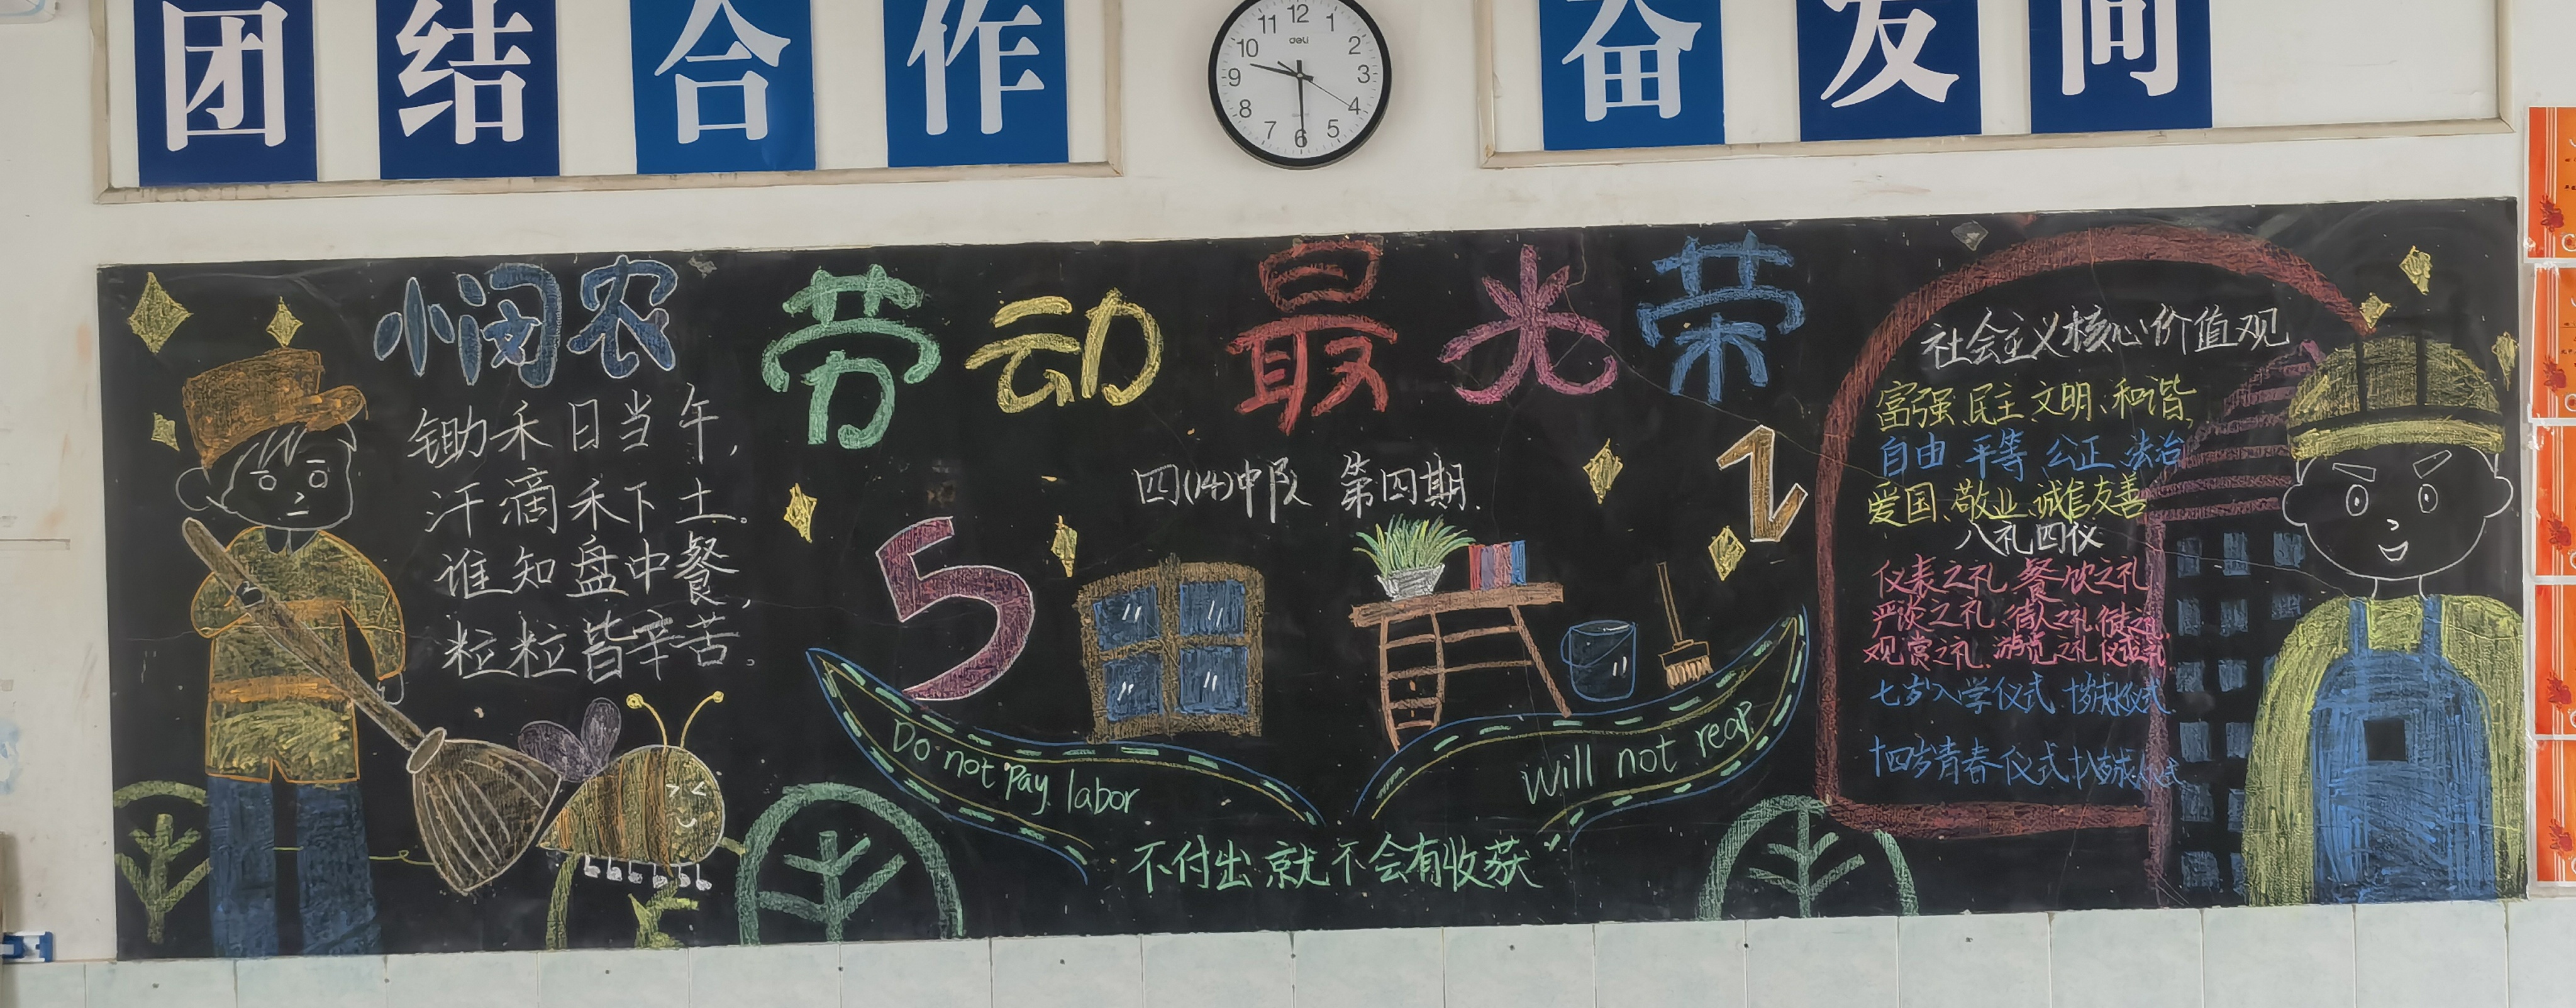 团结合作
奋发向
12
1
2
3
4
5
6
7
8
9
10
11
deli
悯农
锄禾日当午,
汗滴禾下土。
谁知盘中餐,
粒粒皆辛苦。
劳动最光荣
四(14)中队 第四期.
5
1
Do not pay labor
will not reap
不付出就不会有收获
社会主义核心价值观
富强 民主 文明、和谐、
自由 平等 公正 法治
爱国、敬业、诚信友善
八礼四仪
仪表之礼 餐饮之礼
言谈之礼 待人之礼
观赏之礼、游览之礼 仪式之礼
七岁入学仪式 十岁成长仪式
十四岁青春仪式 十八岁成人仪式